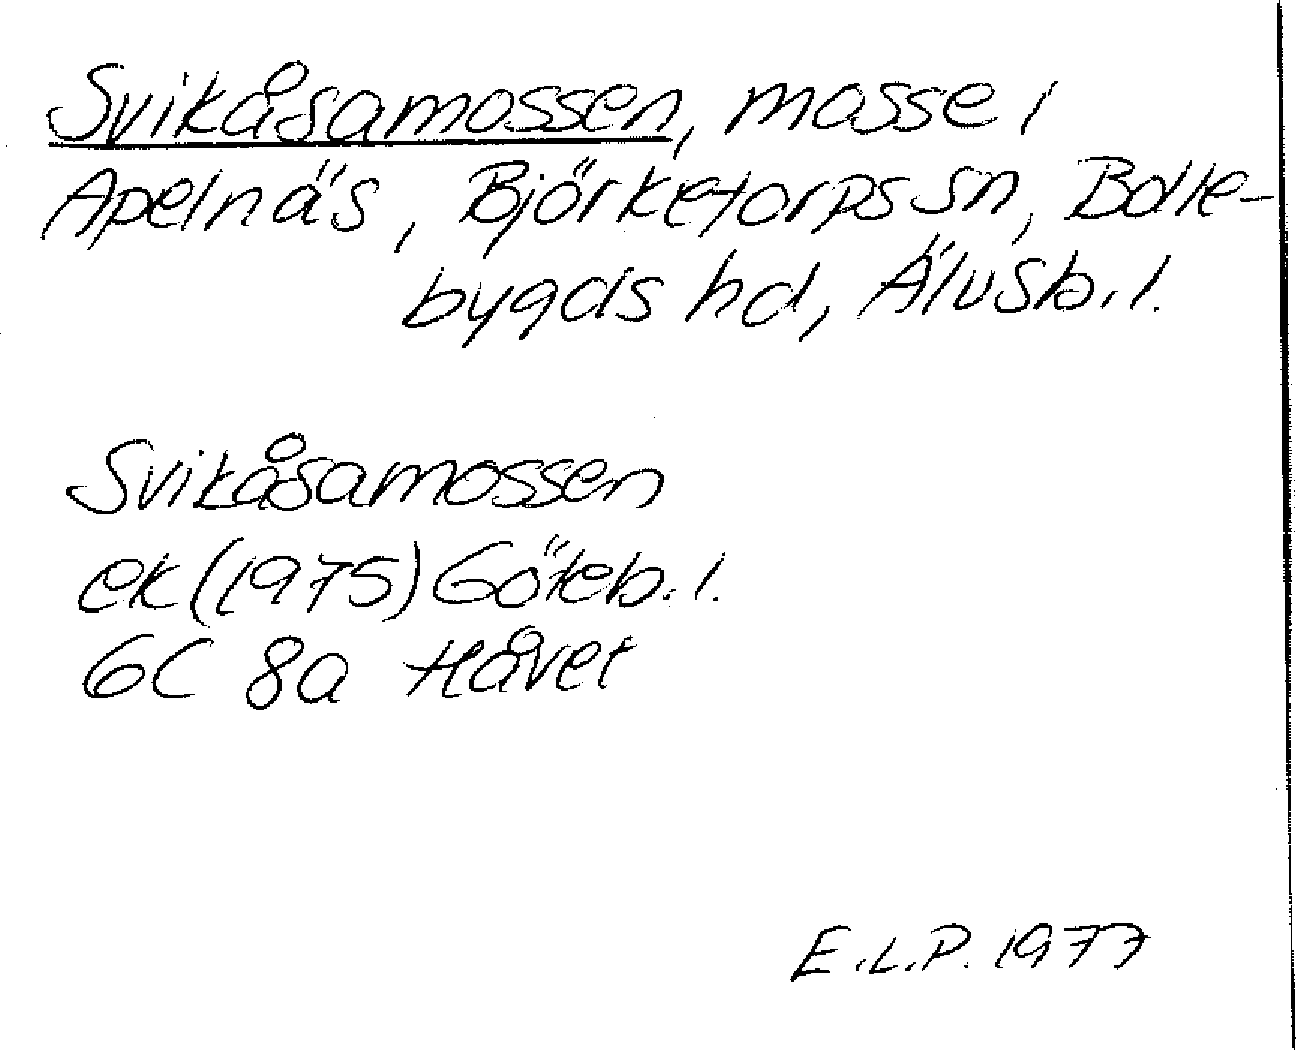 Svikåsamossen, mosse i
Apelnäs, Björketorps sn, Bolle-
bygds hd, Älvsb. l.
Svikåsamossen
ek (1975) Göteb. l.
6C 8a Håvet
E.L.P. 1977